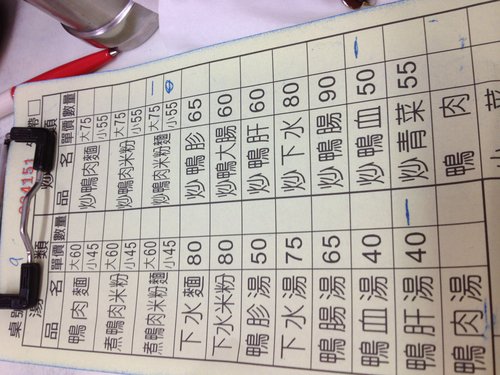 桌號 9
湯 類 炒 類
品 名 單價 數量 品 名 單價 數量
鴨肉麵 大60 小45 炒鴨肉麵 大75 小55
煮鴨肉米粉 大60 小45 炒鴨肉米粉 大75 小55
煮鴨肉米粉麵 大60 小45 炒鴨肉米粉麵 大75 小55
下水麵 80 炒鴨胗 65
下水米粉 80 炒鴨大腸 60
鴨胗湯 50 炒鴨肝 60
下水湯 75 炒下水 80
鴨腸湯 65 炒鴨腸 90
鴨血湯 40 炒鴨血 50
鴨肝湯 40 炒青菜 55
鴨肉湯 鴨肉